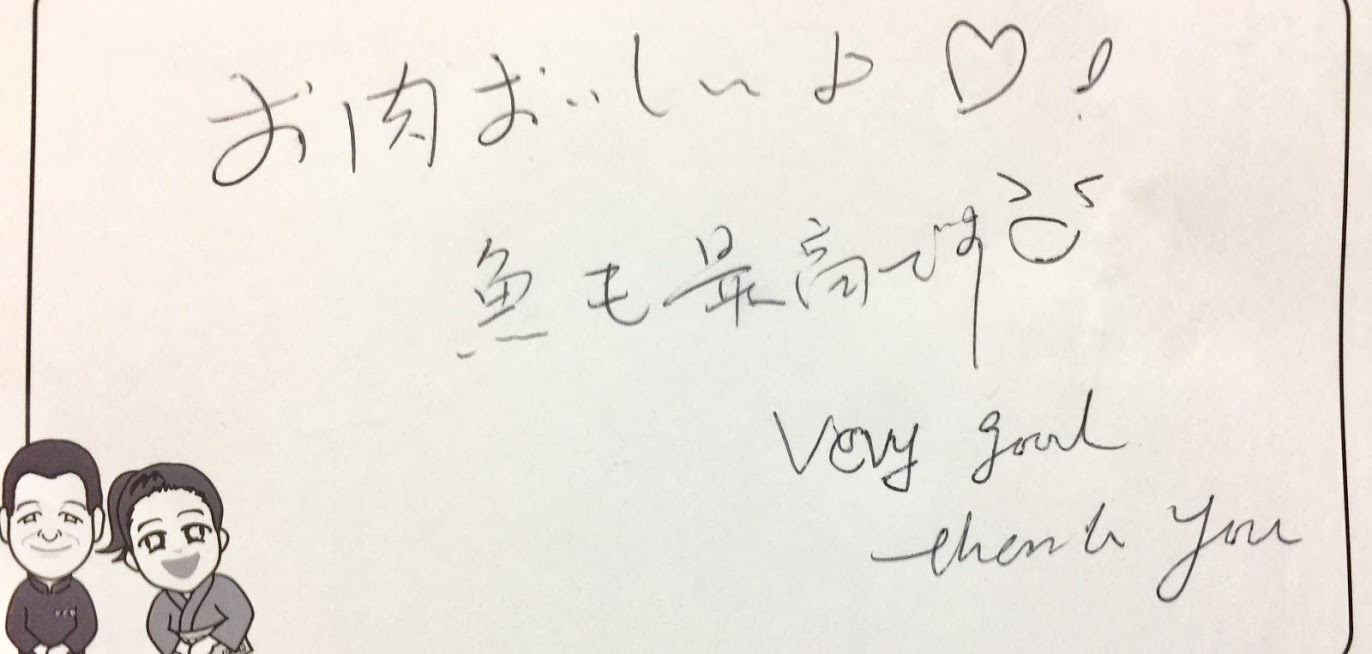 お肉おいしいよ♡!
魚も最高です
Very good
thank you